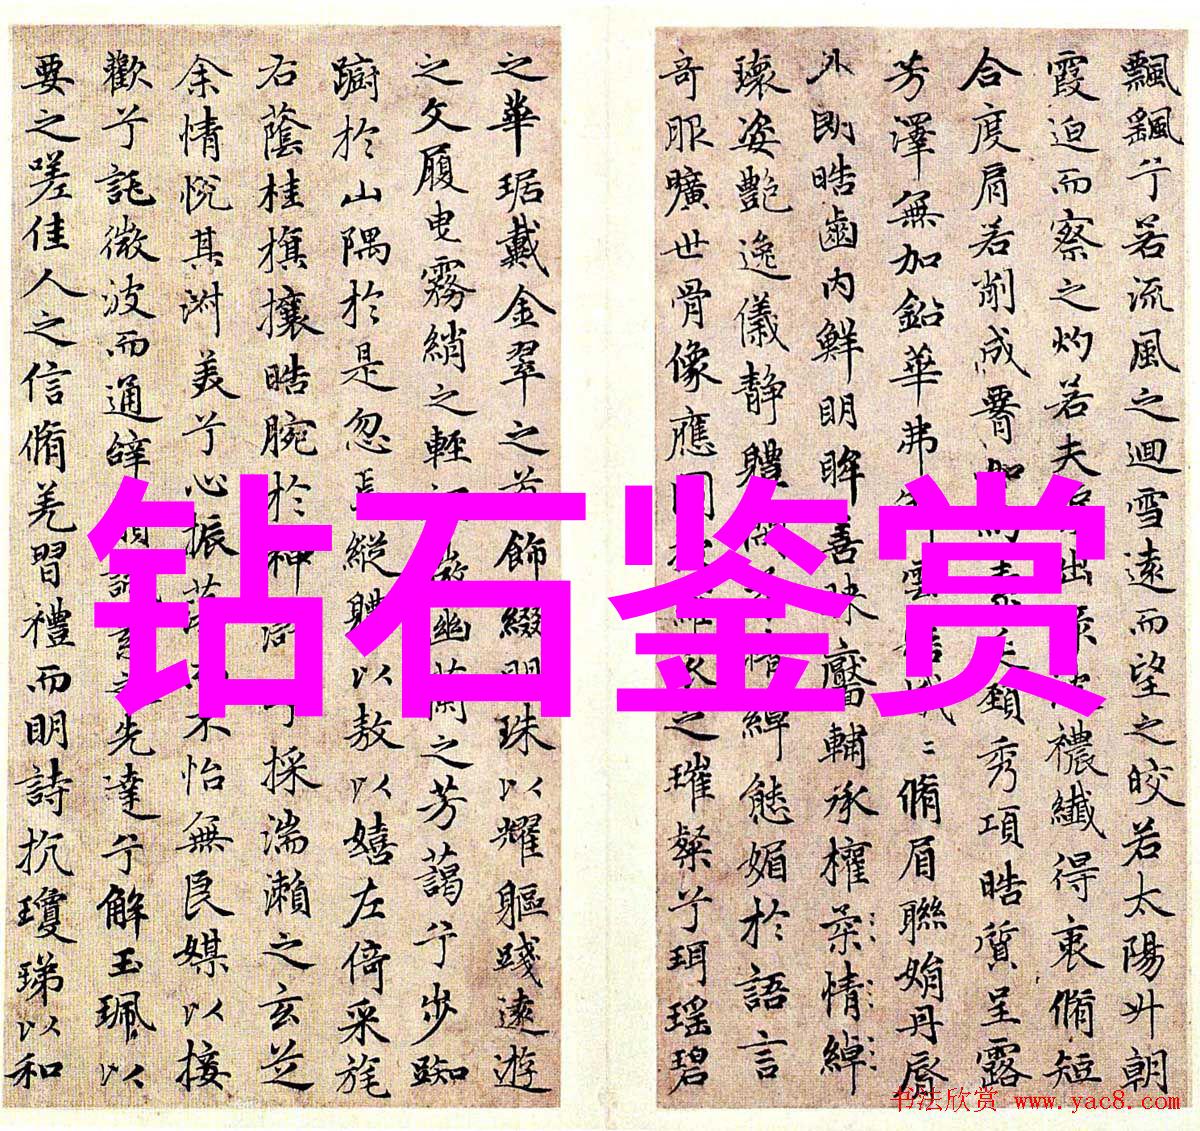 飄飖兮若流風之迴雪遠而望之皎若太陽升朝
霞迫而察之灼若夫出波襛纖得衷脩短
合度肩若削成如素頸秀項皓質呈露
芳澤無加鉛華弗雲脩眉聯娟丹脣
外朗皓齒内鮮明眸善睞靨輔承權柔情綽
瓌姿艷逸儀静體情綽態媚於語言
奇服曠世骨像應圖衣之璀粲兮珥瑶碧
之華琚戴金翠之首飾綴明珠以耀軀踐遠遊
之文履曳霧綃之輕微幽蘭之芳藹兮步踟
躕於山隅於是忽焉縱體以敖以嬉左倚采旄
右蔭桂旗攘皓腕於神滸兮採湍瀨之玄芝
余情悅其淑美兮心振蕩不怡無良媒以接
歡兮託微波而通辭先達兮解玉珮以
要之嗟佳人之信脩羌習禮而明詩抗瓊珶以和
钻石鉴赏
书法欣赏 www.yac8.com